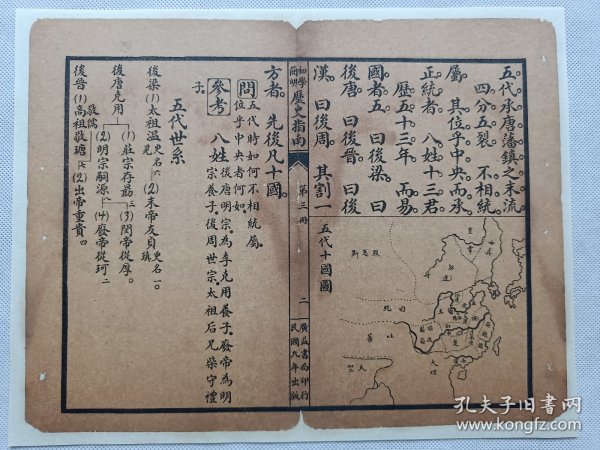 五代。承唐藩鎮之末流。
四分五裂。不相統
屬。其位乎中央而承
正統者。八姓十三君。
歷五十三年。而易
國者五。曰後梁。曰
後唐。曰後晉。曰後
漢。曰後周。其割一
五代十國圖
初學簡明歷史指南
第三冊
二
廣益書局印行
民國九年出版
方者。先後凡十國。
問 五代時如何不相統屬。
位乎中央者何如。
參考 八姓 後唐明宗。為李克用養子。廢帝為明
宗養子。後周世宗。太祖后兄柴守禮
子。
五代世系
後梁 (1)太祖溫 更名晃 六 (2)末帝友貞 更名瑱 一。
後唐克用 (1)莊宗存勗 三 (3)閔帝從厚。
(2)明宗嗣源 八 (4)廢帝從珂 二
敬儒
後晉 (1)高祖敬瑭 六 (2)出帝重貴 四
孔夫子旧书网
www.kongfz.com